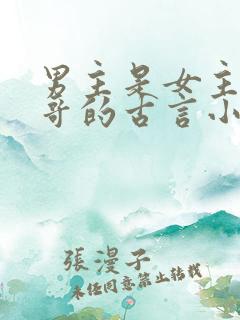 男主是女主
哥的古言小
張漫子
未经同意禁止转载